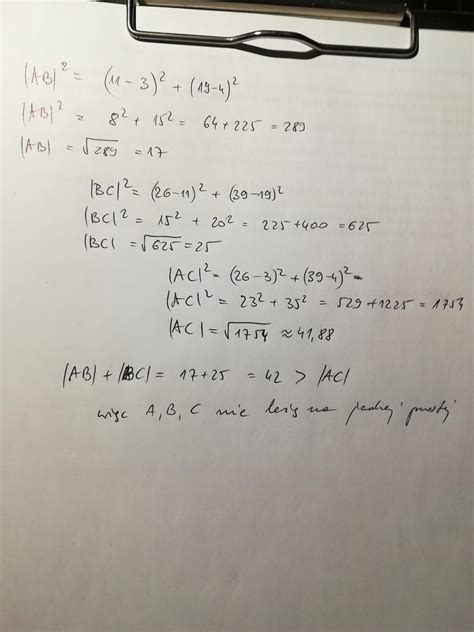 |AB|² = (11-3)² + (19-4)²
|AB|² = 8² + 15² = 64+225 = 289
|AB| = √289 = 17
|BC|² = (26-11)² + (39-19)²
|BC|² = 15² + 20² = 225+400 = 625
|BC| = √625 = 25
|AC|² = (26-3)² + (39-4)² =
|AC|² = 23² + 35² = 529+1225 = 1754
|AC| = √1754 ≈ 41,88
|AB| + |BC| = 17+25 = 42 > |AC|
więc A, B, C nie leżą na jednej prostej